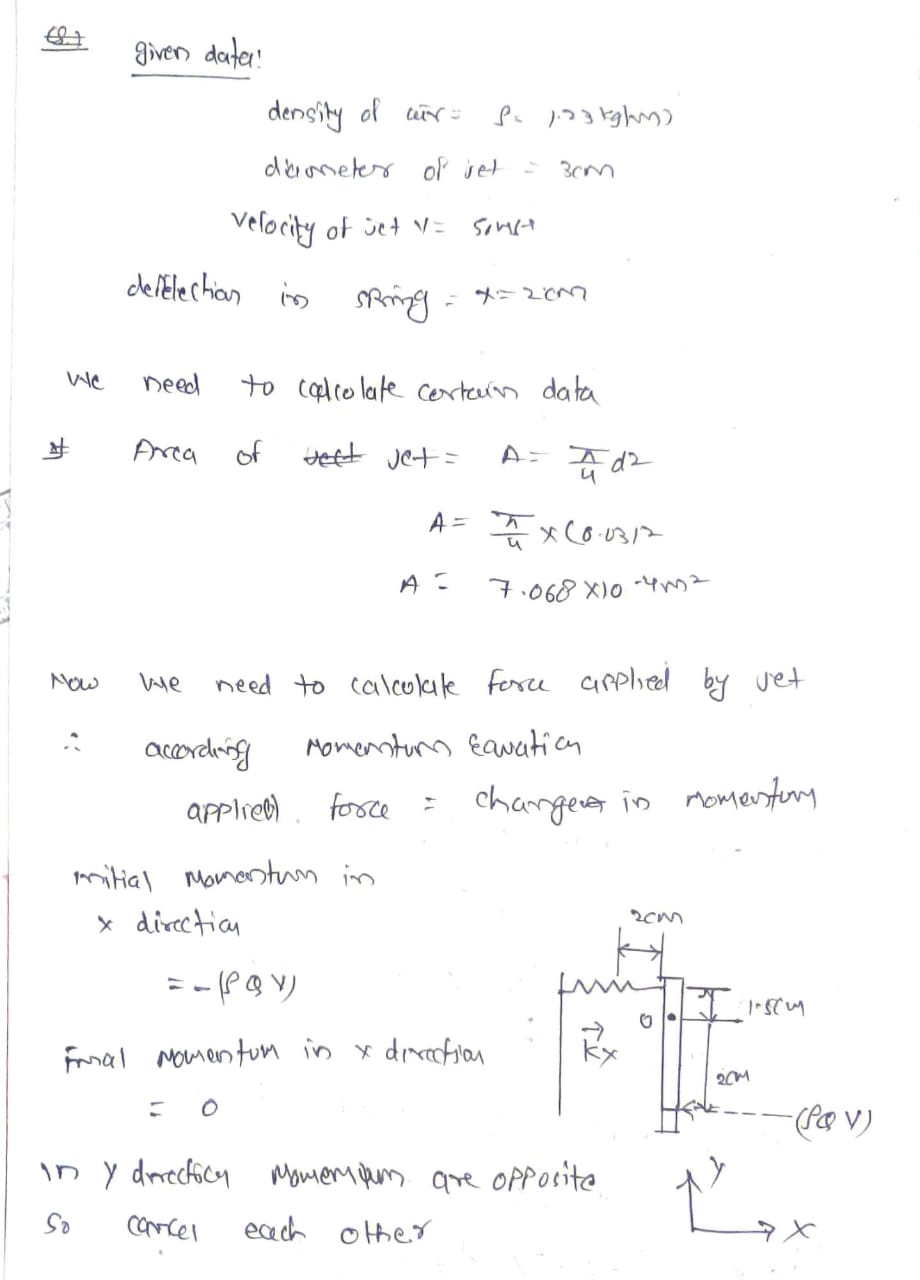 given data:
density of air = ρ = 1.23 kg/m3
diameter of jet = 3cm
velocity of jet V =
deflection in spring = x = 2cm
We need to calculate certain data
Area of jet = A = π/4 d2
A = π/4 × (0.03)2
A = 7.068 × 10 -4 m2
Now we need to calculate force applied by jet
∴ according Momentum Equation
applied force = changes in momentum
initial momentum in
x direction
= - (ρ Q V)
Final momentum in x direction
= 0
in y direction momentum are opposite
so cancel each other
2cm
1.5cm
O
Kx
2cm
(ρQ V)
y
x